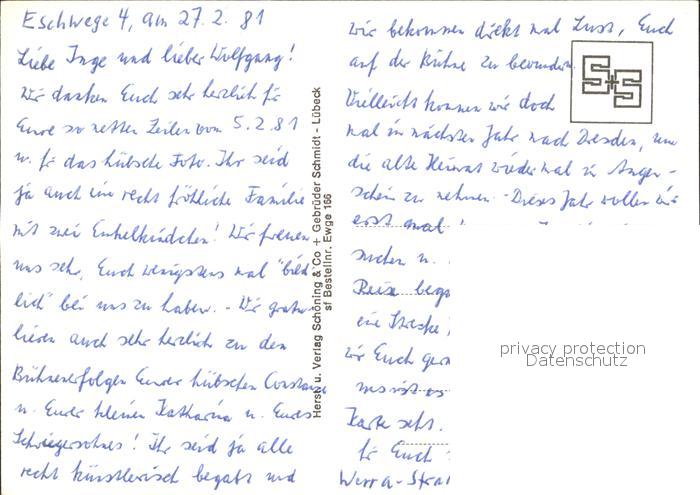 Eschwege 4, am 27.2.81
Liebe Inge und lieber Wolfgang!
Wir danken Euch sehr herzlich für
Eure so netten Zeilen vom 5.2.81
u. für das hübsche Foto. Ihr seid
ja auch eine recht fröhliche Familie
mit zwei Enkelkindchen! Wir freuen
uns sehr, Euch wenigstens mal "bild-
lich" bei uns zu haben. - Wir gratu-
lieren auch sehr herzlich zu den
Bühnenerfolgen Eurer hübschen Constanze
u. Eurer kleinen Katharina u. Eures
Schwiegersohnes! Ihr seid ja alle
recht künstlerisch begabt und
Herst. u. Verlag Schöning & Co + Gebrüder Schmidt - Lübeck
sf Bestellnr. Ewge 166
wir bekommen direkt mal Lust, Euch
auf der Bühne zu bewundern.
S+S
Vielleicht kommen wir doch
mal im nächsten Jahr nach Dresden, um
die alte Heimat wieder mal in Augen-
schein zu nehmen. - Dieses Jahr wollen wir
erst mal
suchen u.
Reise
eine Strecke
wir Euch
uns ist es
Karte seht.
für Euch
Werra-
privacy protection
Datenschutz